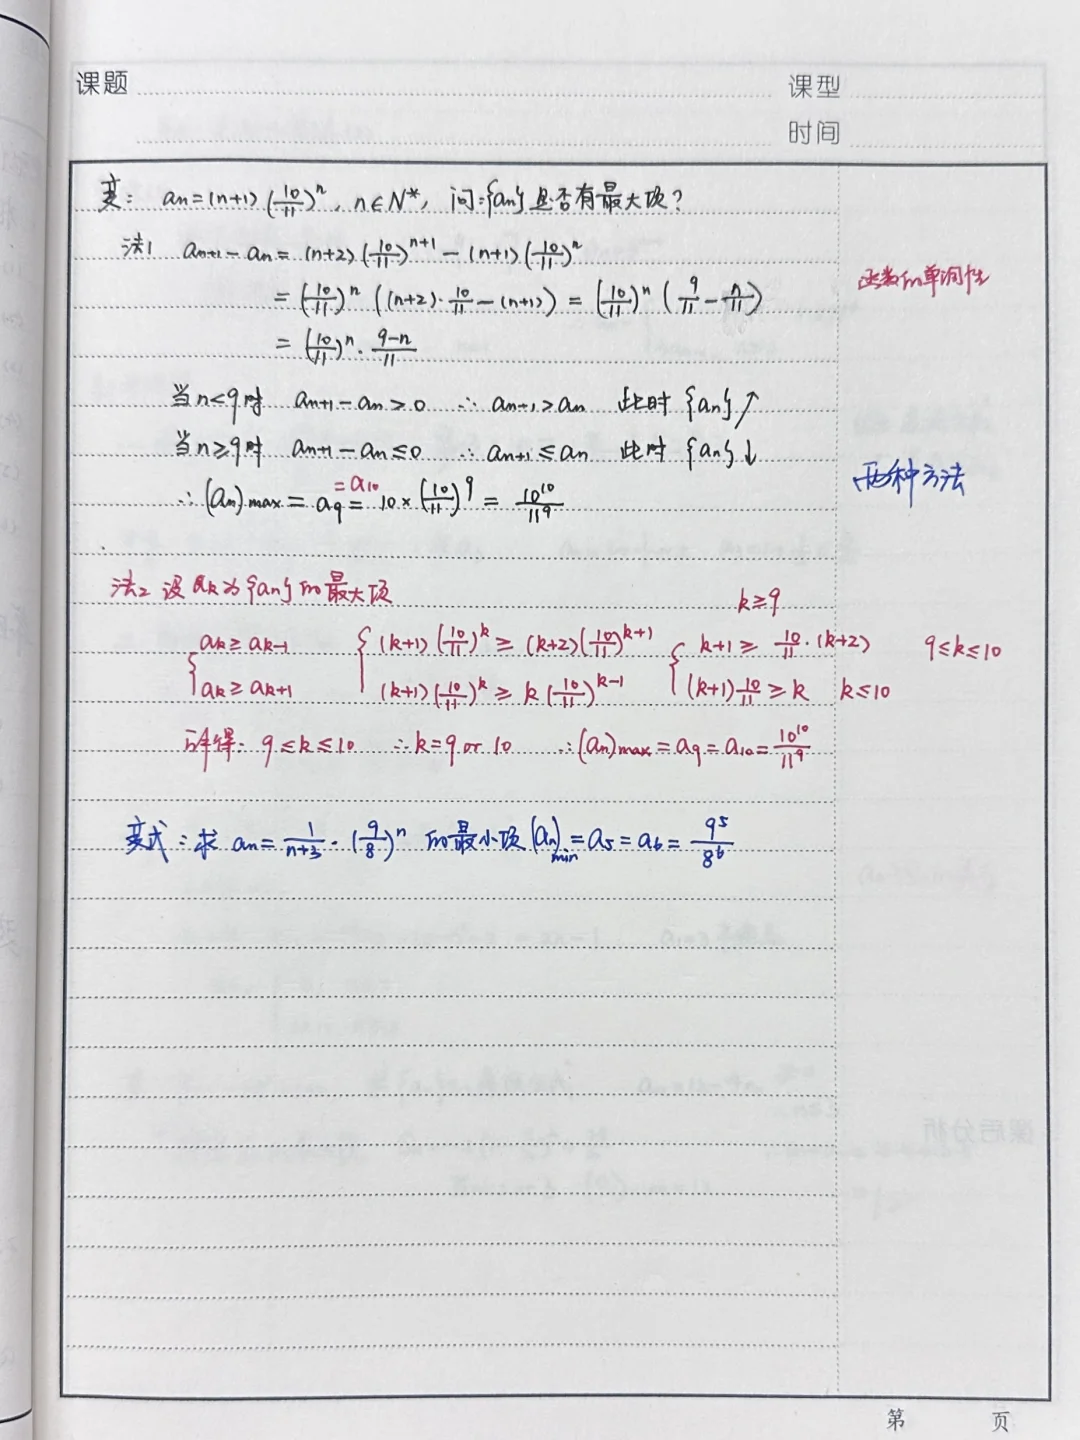 课题 课型
时间
变: aₙ=(n+1)(10/11)ⁿ, n∈N*, 问:{aₙ}是否有最大项?
法1 aₙ₊₁-aₙ=(n+2)(10/11)ⁿ⁺¹-(n+1)(10/11)ⁿ
函数的单调性
=(10/11)ⁿ((n+2)·10/11-(n+1))=(10/11)ⁿ(9/11-n/11)
=(10/11)ⁿ·(9-n)/11
当n<9时 aₙ₊₁-aₙ>0 ∴aₙ₊₁>aₙ 此时{aₙ}↗
当n≥9时 aₙ₊₁-aₙ≤0 ∴aₙ₊₁≤aₙ 此时{aₙ}↓
两种方法
∴(aₙ)max=a₉=a₁₀=10×(10/11)⁹=10¹⁰/11⁹
法2 设aₖ为{aₙ}的最大项
k≥9
{aₖ≥aₖ₋₁ {(k+1)(10/11)ᵏ≥(k+2)(10/11)ᵏ⁺¹ {k+1≥10/11·(k+2) 9≤k≤10
aₖ≥aₖ₊₁ (k+1)(10/11)ᵏ≥k(10/11)ᵏ⁻¹ (k+1)10/11≥k k≤10
解得: 9≤k≤10 ∴k=9 or 10 ∴(aₙ)max=a₉=a₁₀=10¹⁰/11⁹
变式:求aₙ=1/(n+3)·(9/8)ⁿ的最小项(aₙ)min=a₅=a₆=9⁵/8⁶
第 页